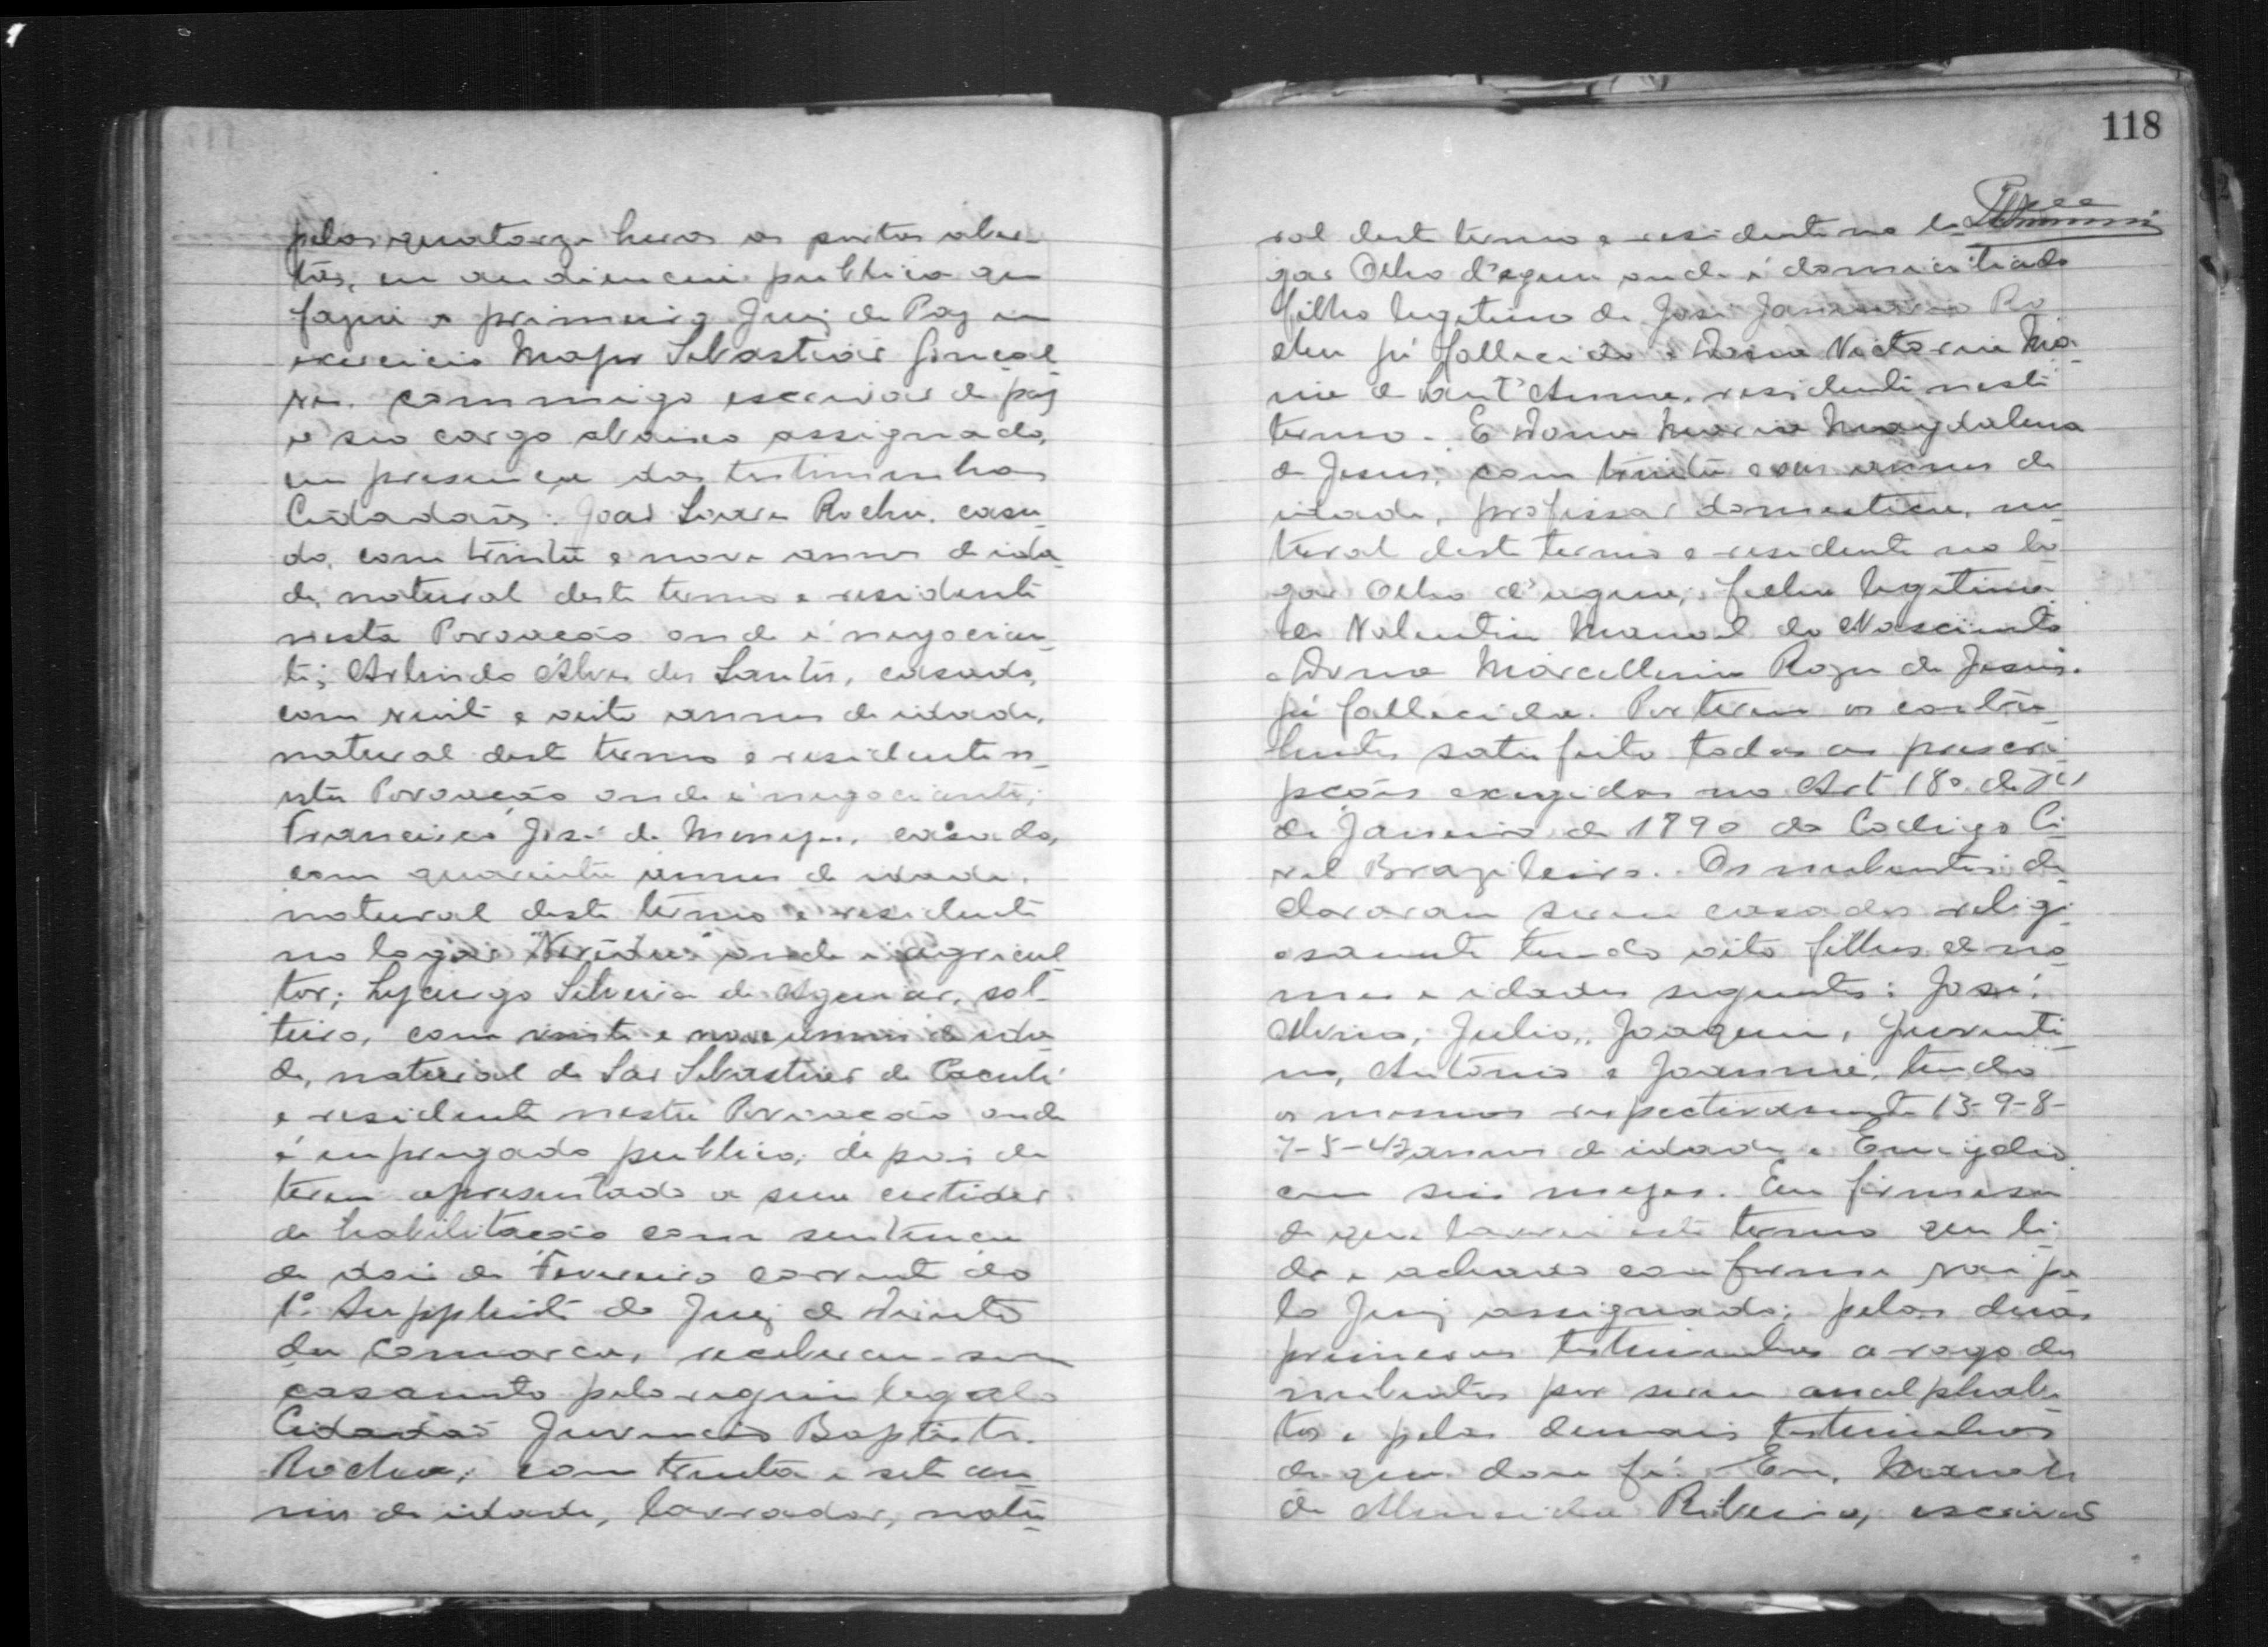 pelas quatorze horas as portas aber-
tas, em audiencia publica que
fazia o primeiro Juiz de Paz em
exercicio Major Sebastião Gonçal-
ves. commigo escrivão de paz
e seo cargo abaixo assignado,
em presença das testiminhas
Cidadaõs: Joaõ Soares Rocha. casa-
do, com trinta e nove annos de ida-
de, natural deste termo e residente
nesta Povoação onde é negocian-
te; Arlindo Alves dos Santos, casado,
com vinte e oito annos de idade,
natural deste termo e residente n-
esta Povoação onde é negociante;
Francisco José de Menezes, casado,
com quarenta annos de idade.
natural deste termo e residente
no logar onde é agricul-
tor; Lycurgo Silveira de Aguiar, sol-
teiro, com vinte e nove annos de ida-
de, natural de Saõ Sebastiaõ de Caculé
e residente nesta Povoação onde
é empregado publico; depois de
terem apresentado a sua certidaõ
de habilitação com sentença
de dois de Fevereiro corrente do
1º Supplente do Juiz de Direito
da Comarca, receberam-se em
casamento pelo regimem legal o
Cidadaõ Juvencio Baptista
Rocha, com trinta e sete an-
nos de idade, lavrador, natu-
118
ral deste termo e residente no lo-
gar Olho d'agua onde é domiciliado
filho legitimo de José Januario Ro-
cha já fallecido e Dona Victoria Ma-
ria de Sant'Anna, residente neste
termo. E Dona Maria Magdalena
de Jesus, com trinta e seis annos de
idade, profissaõ domestica, na-
tural deste termo e residente no lo-
gar Olho d'agua; filha legitima
de Valentim Manoel do Nascimento
e Dona Marcellina Roza de Jesus.
já fallecida. Por terem os contra-
hentes satisfeito todas as prescri-
pções exigidas no Art 180 de
de Janeiro de 1890 do Codigo Ci-
vil Brazileiro. Os nubentes de-
clararam serem casados religi-
osamente tendo oito filhos de no-
mes e idades seguintes: José,
Julio, Joaquim, Juventi-
no, Antonio e Joanna, tendo
os mesmos respectivamente 13-9-8-
7-5- annos de idade e Emygdio
com seis mezes. Em firmesa
do que lavrei este termo que li-
do e achado conforme vai pe-
lo Juiz assignado; pelas duas
primeiras testiminhas a rogo dos
nubentes por serem analphabe-
tos e pelas demais testiminhas
do que dou fé. Eu, Manoel
de Almeida Ribeiro, escrivaõ